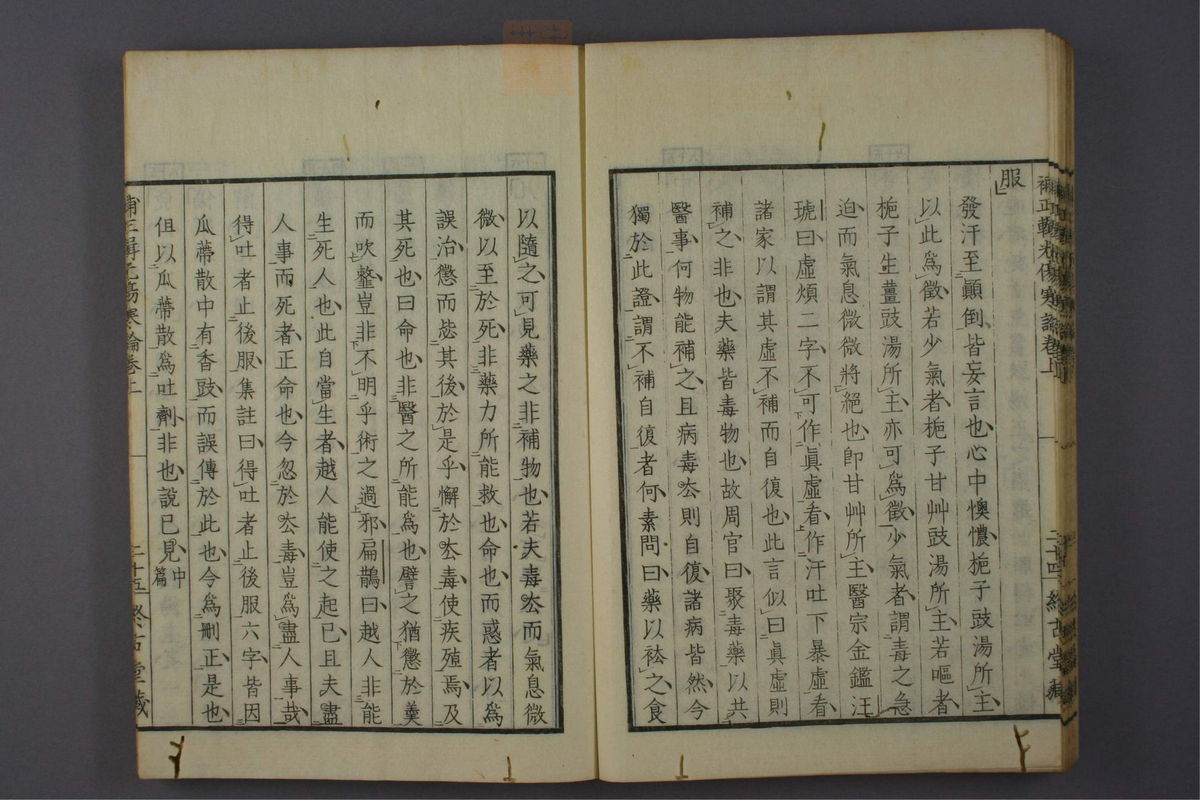 補正輯光傷寒論卷上
二十四
終古堂藏
服
發汗至顚倒皆妄言也心中懊憹梔子豉湯所主
以此爲徵若少氣者梔子甘艸豉湯所主若嘔者
梔子生薑豉湯所主亦可爲徵少氣者謂毒之急
迫而氣息微微將絕也卽甘艸所主醫宗金鑑汪
琥曰虛煩二字不可作眞虛看作汗吐下暴虛看
諸家以謂其虛不補而自復也此言似曰眞虛則
補之非也夫藥皆毒物也故周官曰聚毒藥以共
醫事何物能補之且病毒厺則自復諸病皆然今
獨於此證謂不補自復者何素問曰藥以袪之食
以隨之可見藥之非補物也若夫毒厺而氣息微
微以至於死非藥力所能救也命也而惑者以爲
誤治懲而惎其後於是乎懈於厺毒使疾殖焉及
其死也曰命也非醫之所能爲也譬之猶懲於羹
而吹韲豈非不明乎術之過邪扁鵲曰越人非能
生死人也此自當生者越人能使之起已且夫盡
人事而死者正命也今忽於厺毒豈爲盡人事哉
得吐者止後服集註曰得吐者止後服六字皆因
瓜蔕散中有香豉而誤傳於此也今爲刪正是也
但以瓜蔕散爲吐劑非也說已見中篇
補正輯光傷寒論卷上
二十五
終古堂藏